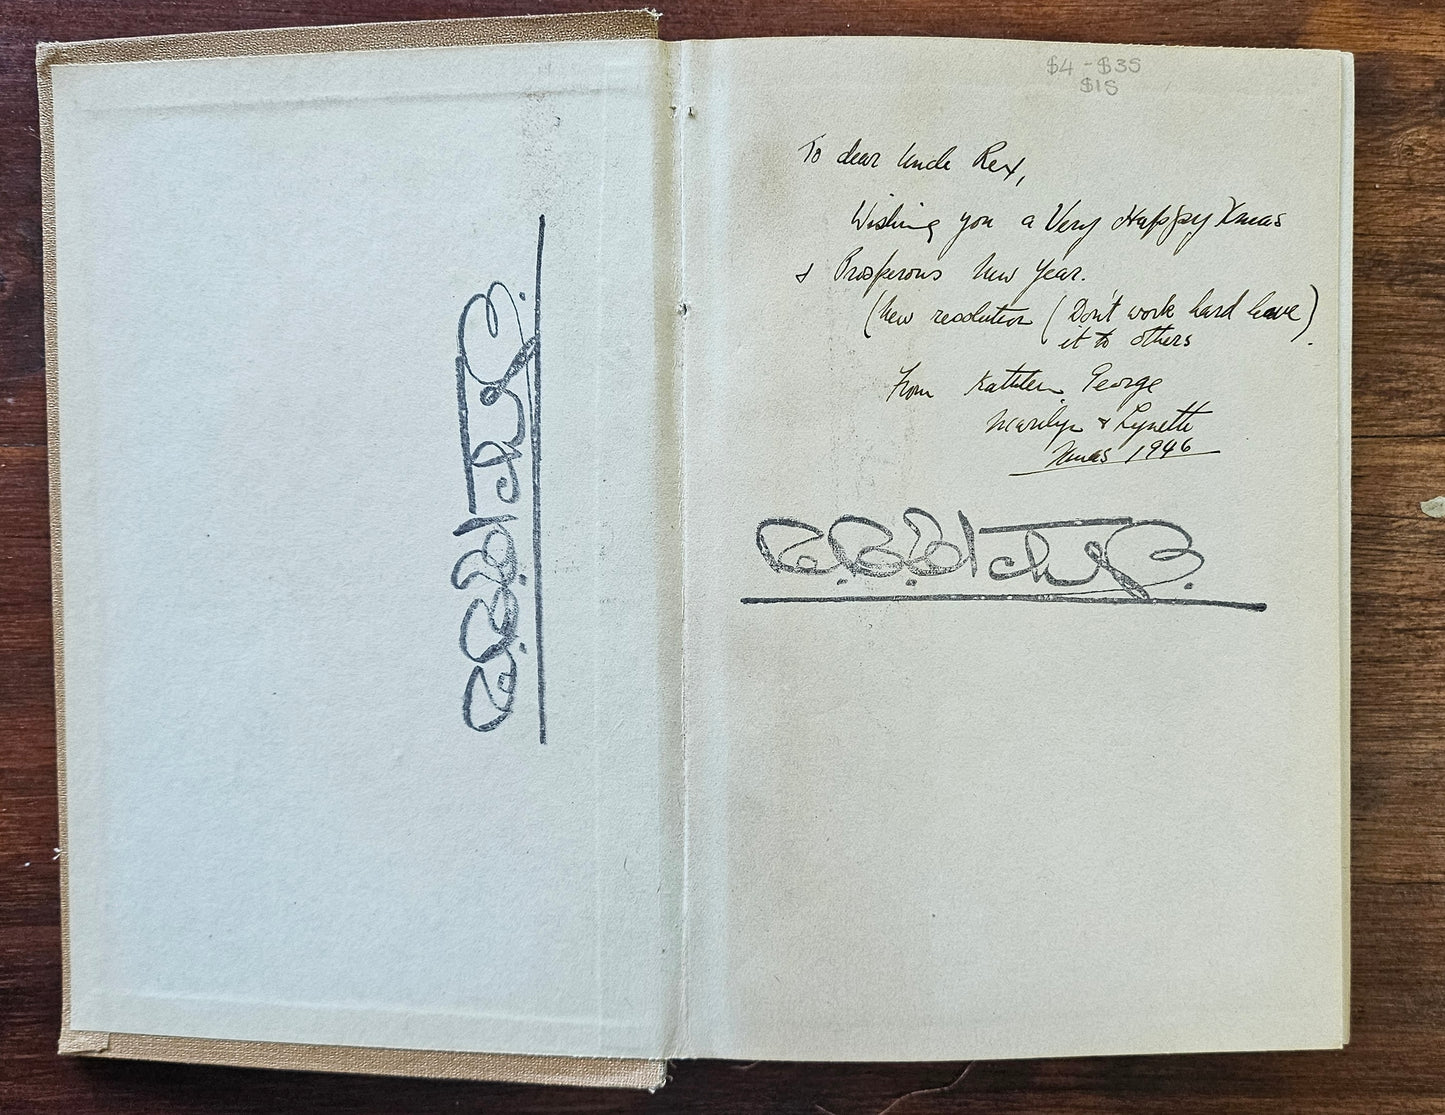 $4 - $35
$15
To dear Uncle Rex,
Wishing you a Very Happy Xmas
& Prosperous New Year.
(New resolution (Don't work hard leave)
it to others .
From Kathleen, George
Marilyn & Lynette
Xmas 1946
R. B.
R. B.